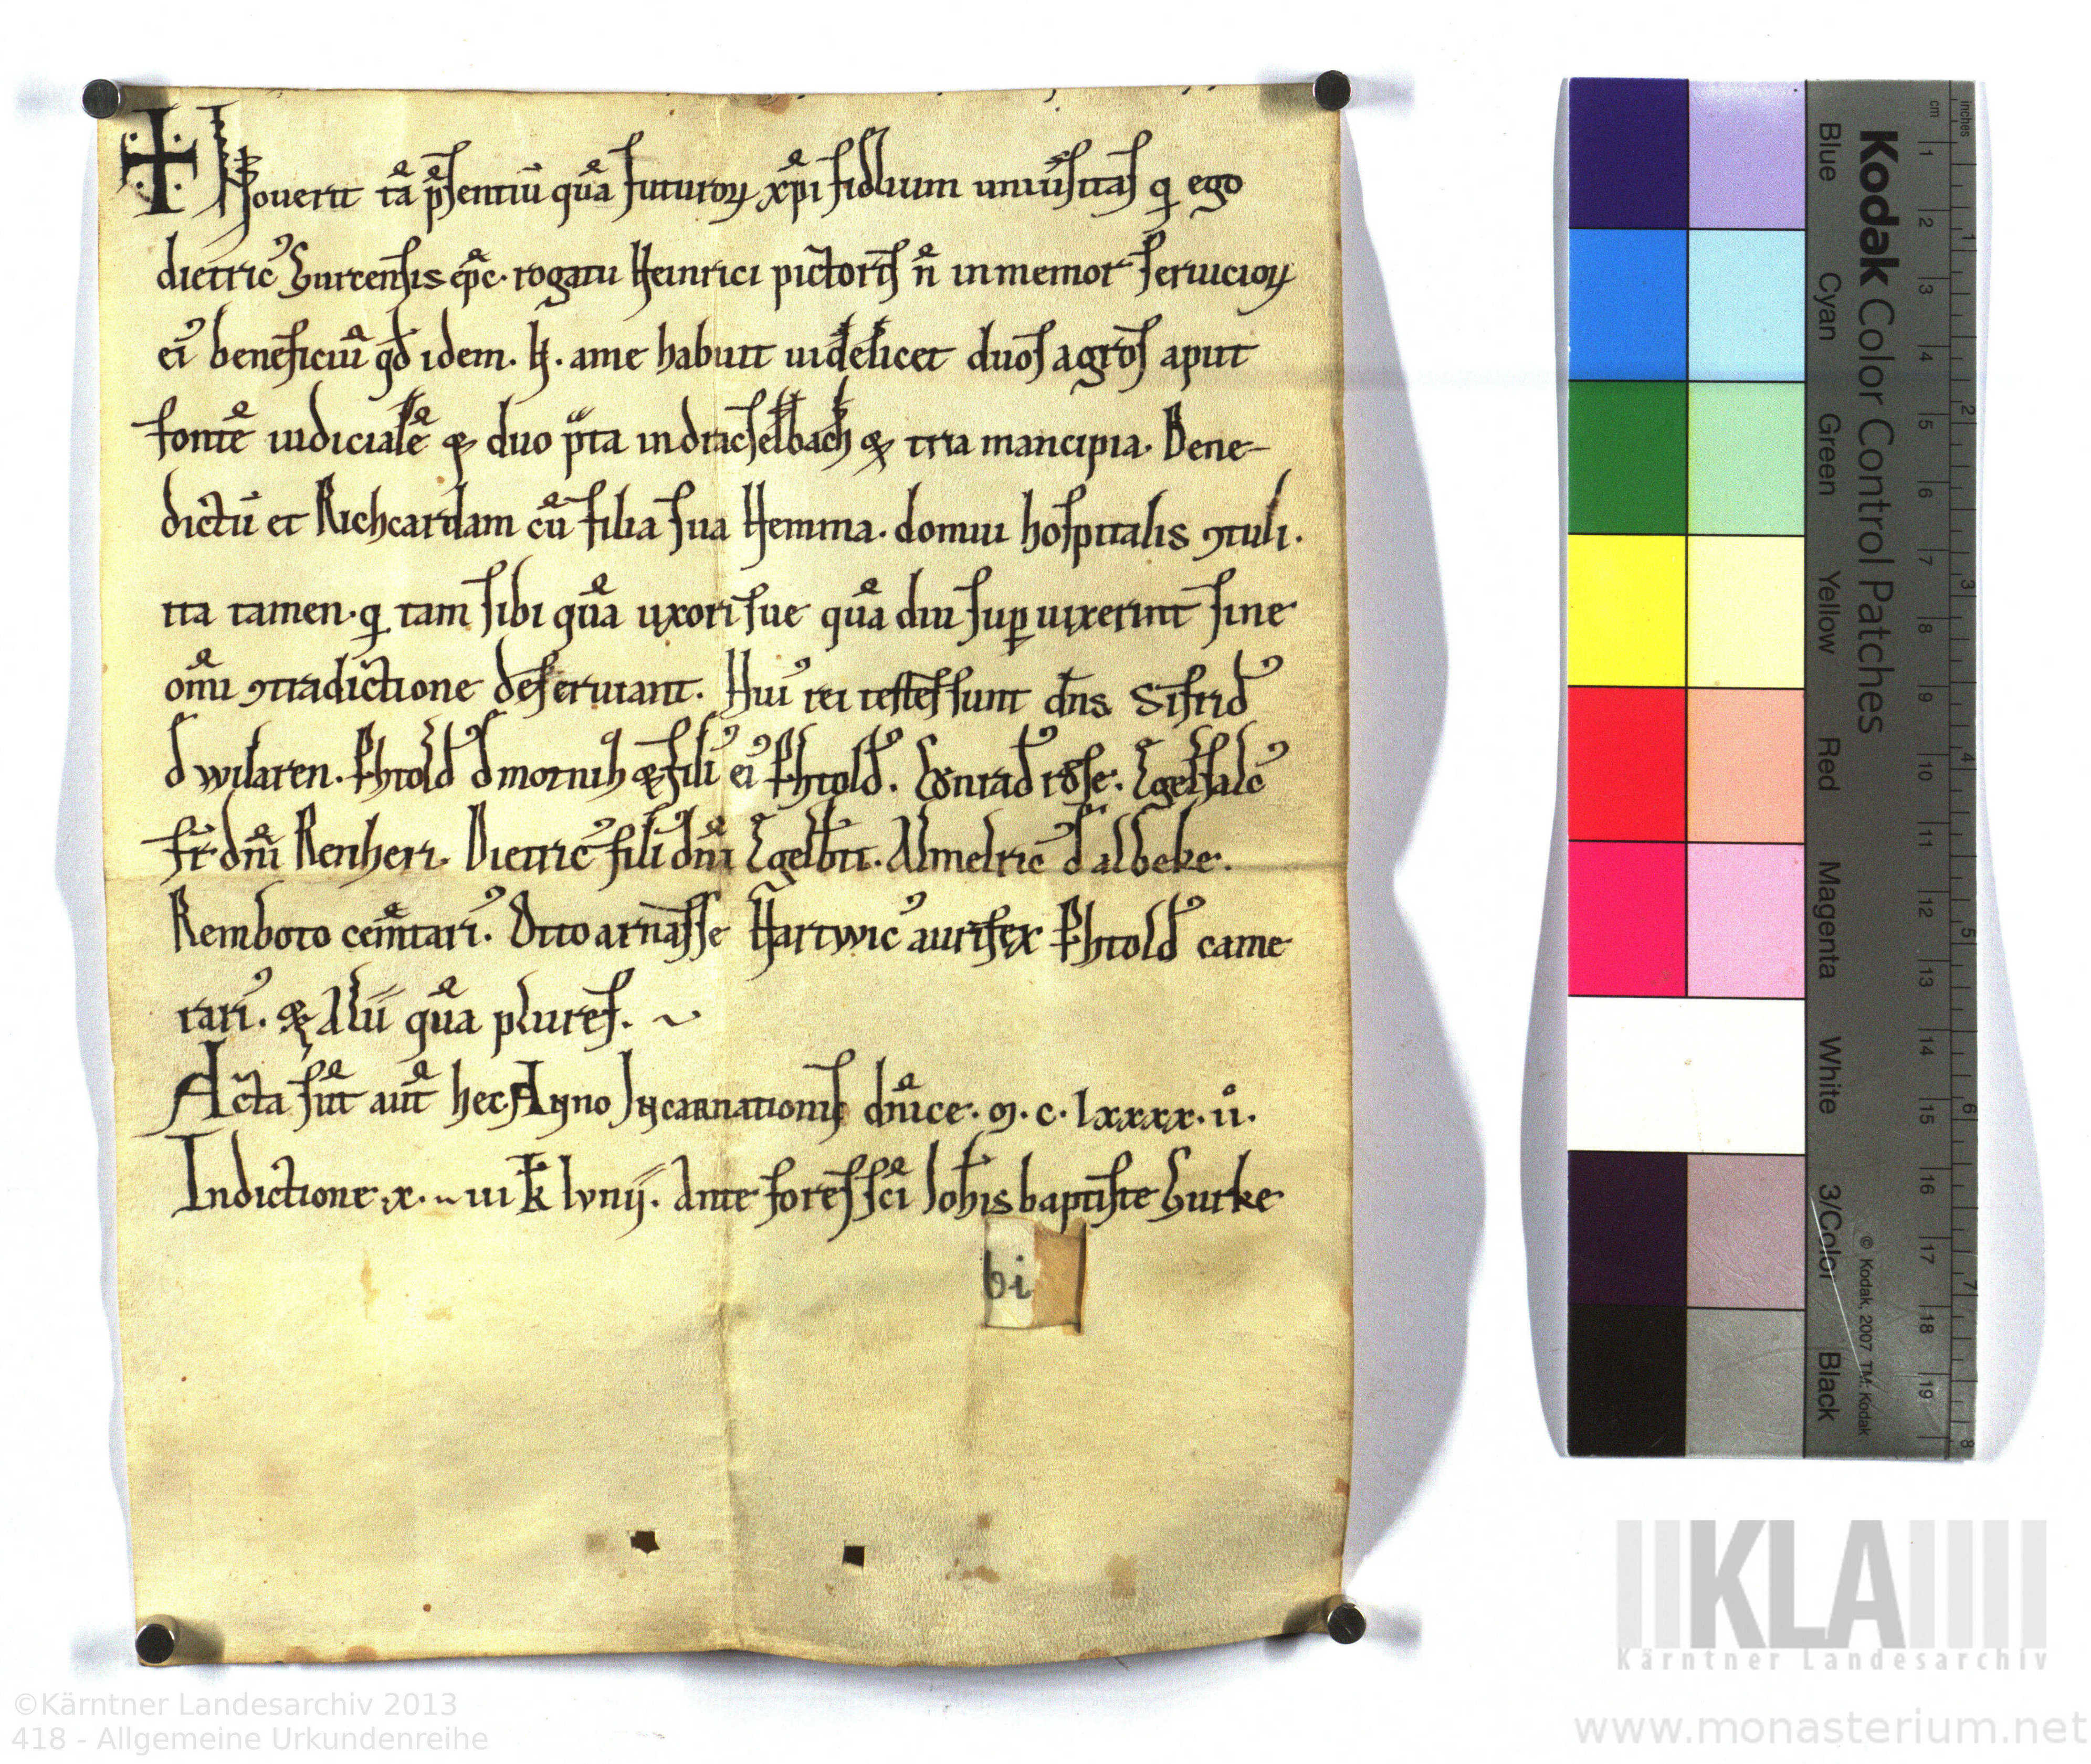 Noverit tā p̄sentiū quā futuroꝝ xp̄i fidlium uniūsitas ꝙ ego
dietric᾽ Gurcensis ep̄c · rogatu Heinrici pictoris n̄ inmemor seruicioꝝ
ei᾽ beneficiū qd̄ idem · h · a me habuit uidelicet duos agros aput
fontē iudicialē ⁊ duo p̄ta in drachselbach ⁊ tria mancipia · Bene-
dictū et Richcardam cū filia sua Hemma · domui hospitalis ꝯtuli ·
ita tamen · ꝙ tam sibi quā uxori sue quā diu suꝑ uixerint sine
om̄i ꝯtradictione deseruiant · Hui᾽ rei testes sunt dn̄s Sifrid᾽
d̄ wilaren · Phtold᾽ d̄ ⁊ fili᾽ ei᾽ Phtold᾽ · Egelscalc᾽
fr̄ dn̄i Renheri · Dietric᾽ fili᾽ dn̄i Egelb̄ti · Almelric᾽ d̄ albeke ·
Remboto cem̄tari᾽ · Otto arnasse Hartwic᾽ aurifex Phtold᾽ came
rari᾽ · ⁊ Alii quā plures ·
Acta sūt aūt hec Anno Incarnationis dn̄ice · m · c · lxxxx · ii ·
Indictione · x · uii k̄ Iunij · Ante fores sc̄i Ioh̄is baptiste Gurke
bi
Kodak Color Control Patches
Blue Cyan Green Yellow Red Magenta White 3/Color Black
© Kodak, 2007 TM: Kodak
cm 1 2 3 4 5 6 7 8 9 10 11 12 13 14 15 16 17 18 19
inches 1 2 3 4 5 6 7 8
KLA
Kärntner Landesarchiv
©Kärntner Landesarchiv 2013
418 - Allgemeine Urkundenreihe
www.monasterium.net